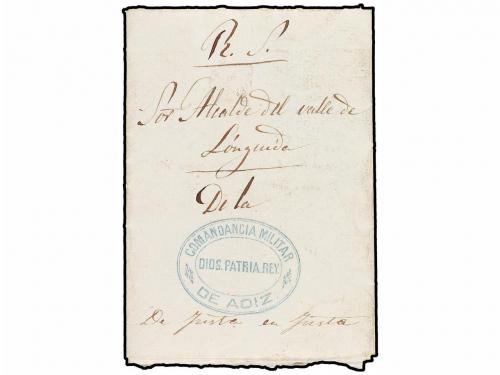 R. S.
Sor Alcalde del valle de
Lónguida
De la
COMANDANCIA MILITAR
DIOS. PATRIA. REY.
DE AOIZ
De Justa en Justa